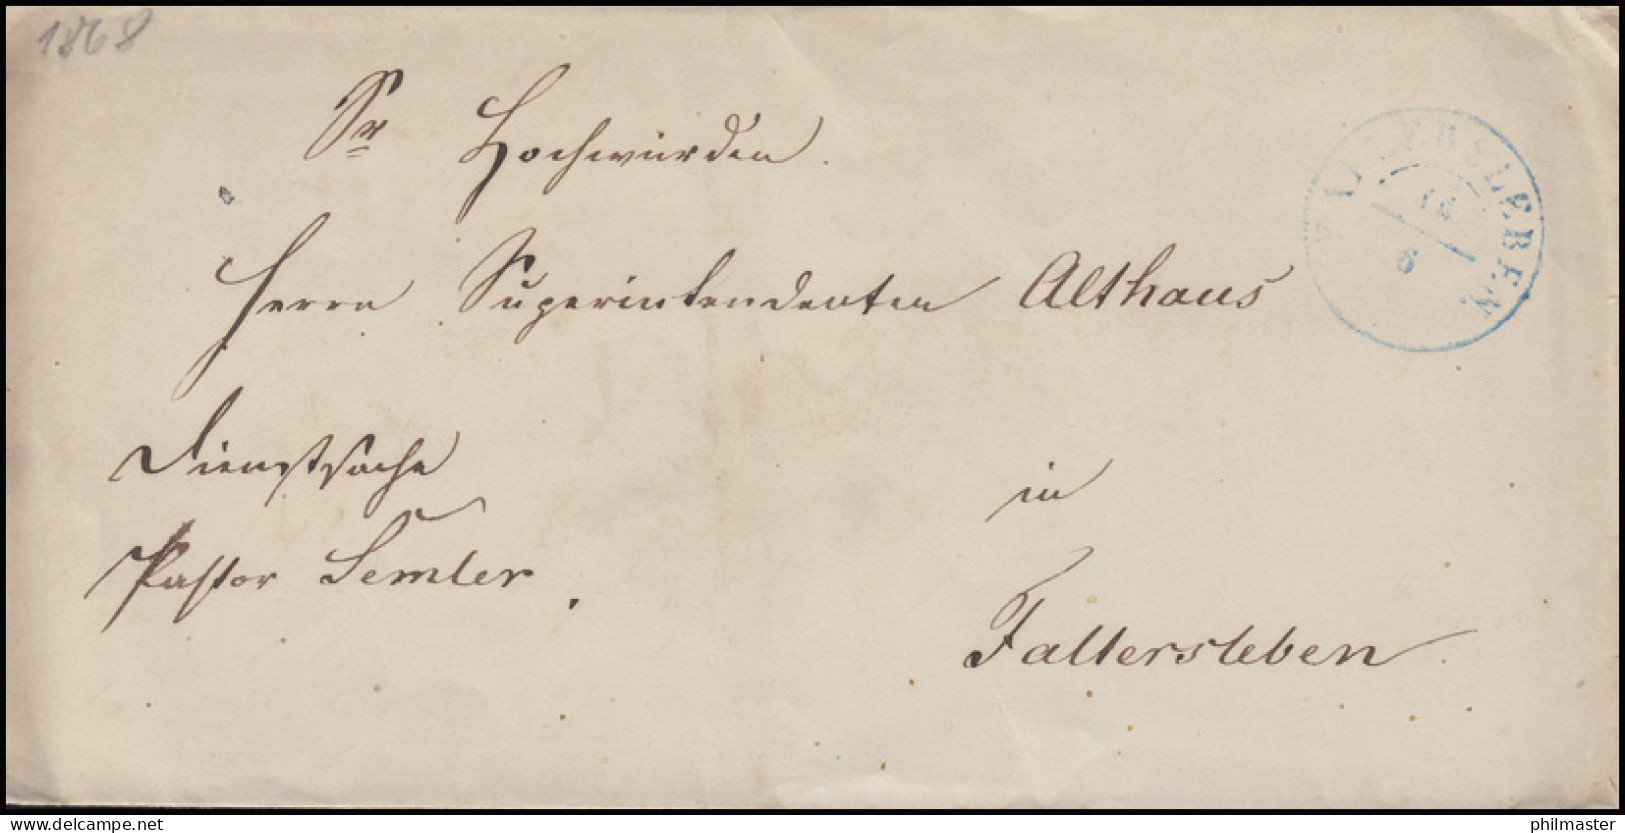 1868
Sr Hochwürden
Herrn Superintendenten Althaus
Dienstsache
in
Pastor Semler.
Fallersleben
FALLERSLEBEN
6
delcampe.net
philmaster